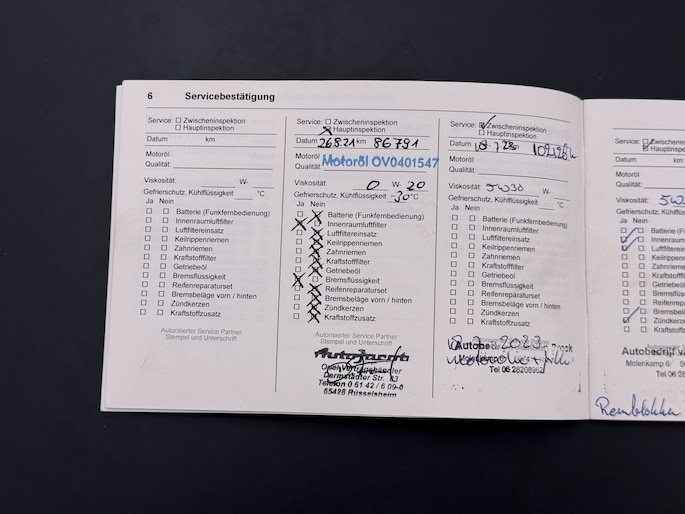 6 Servicebestätigung
Service: Zwischeninspektion
Hauptinspektion
Datum km
Motoröl
Qualität:
Viskosität: W-
Gefrierschutz, Kühlflüssigkeit °C
Ja Nein
Batterie (Funkfernbedienung)
Innenraumluftfilter
Luftfiltereinsatz
Keilrippenriemen
Zahnriemen
Kraftstofffilter
Getriebeöl
Bremsflüssigkeit
Reifenreparaturset
Bremsbeläge vorn / hinten
Zündkerzen
Kraftstoffzusatz
Autorisierter Service Partner
Stempel und Unterschrift
Service: Zwischeninspektion
Hauptinspektion
Datum 26.8.21 km 86791
Motoröl
Qualität: Motoröl OV0401547
Viskosität: 0 W- 20
Gefrierschutz, Kühlflüssigkeit -30°C
Ja Nein
Batterie (Funkfernbedienung)
Innenraumluftfilter
Luftfiltereinsatz
Keilrippenriemen
Zahnriemen
Kraftstofffilter
Getriebeöl
Bremsflüssigkeit
Reifenreparaturset
Bremsbeläge vorn / hinten
Zündkerzen
Kraftstoffzusatz
Autorisierter Service Partner
Stempel und Unterschrift
Opel Vertragshändler
Darmstädter Str. 83
Telefon 0 61 42 / 6 09-0
65428 Rüsselsheim
Service: Zwischeninspektion
Hauptinspektion
Datum
Motoröl
Qualität:
Viskosität: 5W30 W-
Gefrierschutz, Kühlflüssigkeit °C
Ja Nein
Batterie (Funkfernbedienung)
Innenraumluftfilter
Luftfiltereinsatz
Keilrippenriemen
Zahnriemen
Kraftstofffilter
Getriebeöl
Bremsflüssigkeit
Reifenreparaturset
Bremsbeläge vorn / hinten
Zündkerzen
Kraftstoffzusatz
Autorisierter Service Partner
Stempel und Unterschrift
2023
Tel 06 28208962
Service: Zwischeninspektion
Hauptinspektion
Datum km
Motoröl
Qualität:
Viskosität:
Gefrierschutz,
Ja Nein
Batterie
Keilrippenriemen
Zahnriemen
Kraftstofffilter
Getriebeöl
Bremsbeläge
Zündkerzen
Autorisierter
Stempel
Autobedrijf
Molenkamp 6
Tel 06 28
Remblokken